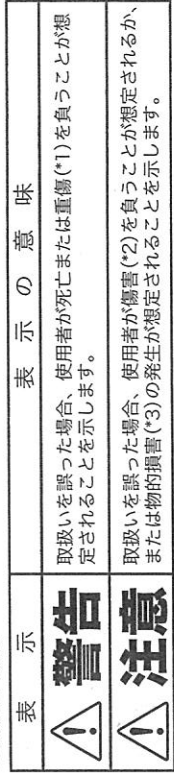 表示
表示の意味
警告
取扱いを誤った場合、使用者が死亡または重傷(*1)を負うことが想
定されることを示します。
注意
取扱いを誤った場合、使用者が傷害(*2)を負うことが想定されるか、
または物的損害(*3)の発生が想定されることを示します。